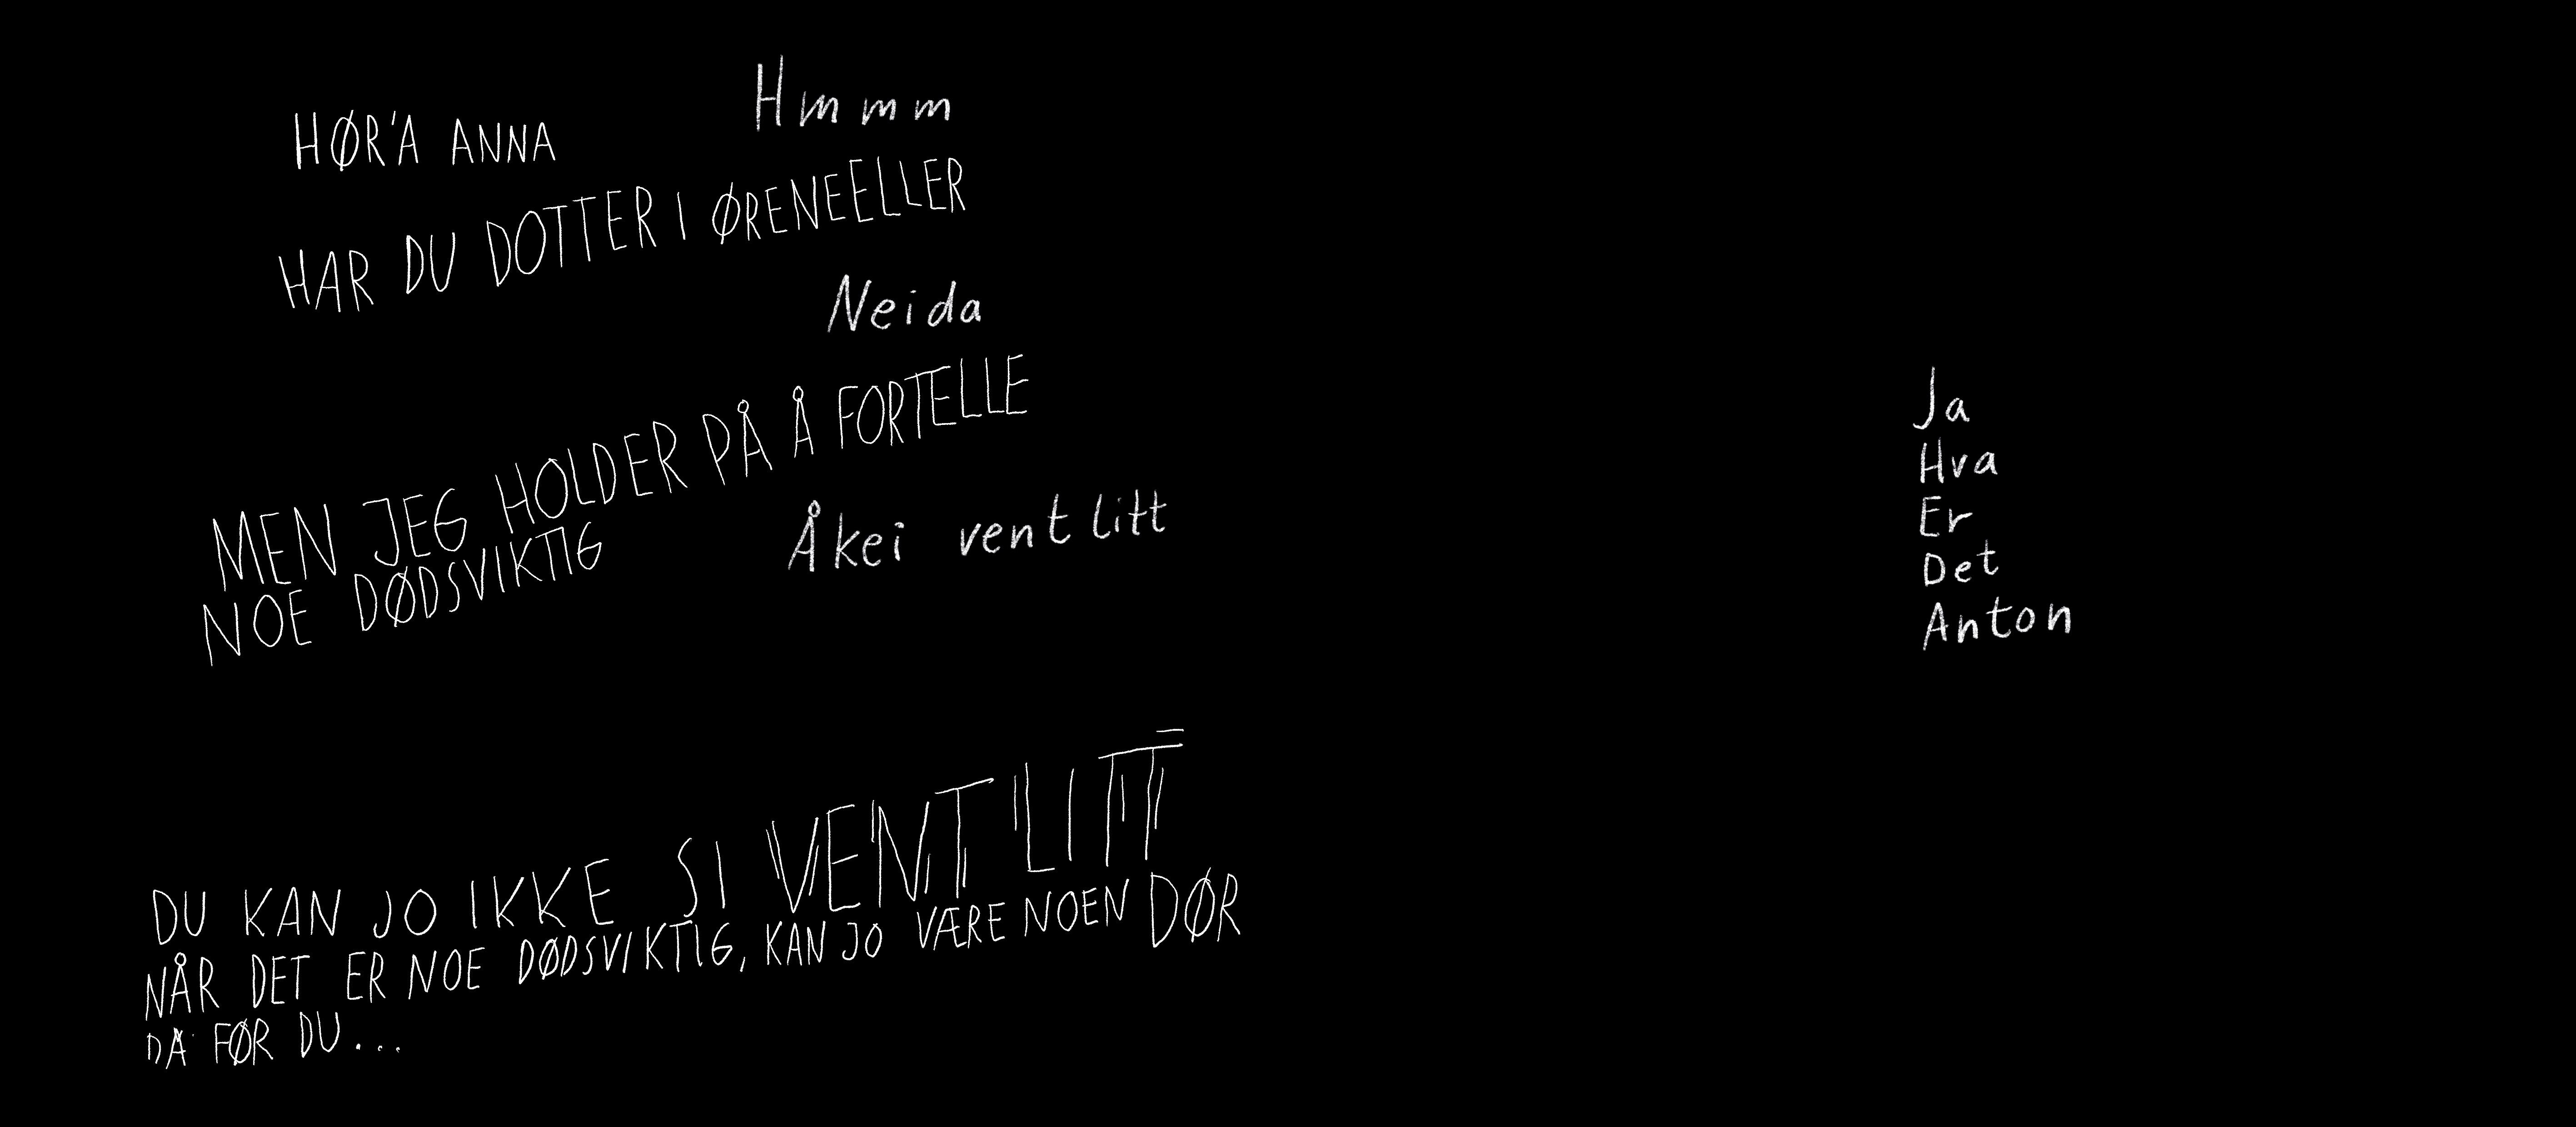 HØR'A ANNA
Hmmm
HAR DU DOTTER I ØRENE ELLER
Neida
MEN JEG HOLDER PÅ Å FORTELLE
NOE DØDSVIKTIG
Åkei vent litt
DU KAN JO IKKE SI VENT LITT
NÅR DET ER NOE DØDSVIKTIG, KAN JO VÆRE NOEN DØR
DA FØR DU...
Ja
Hva
Er
Det
Anton